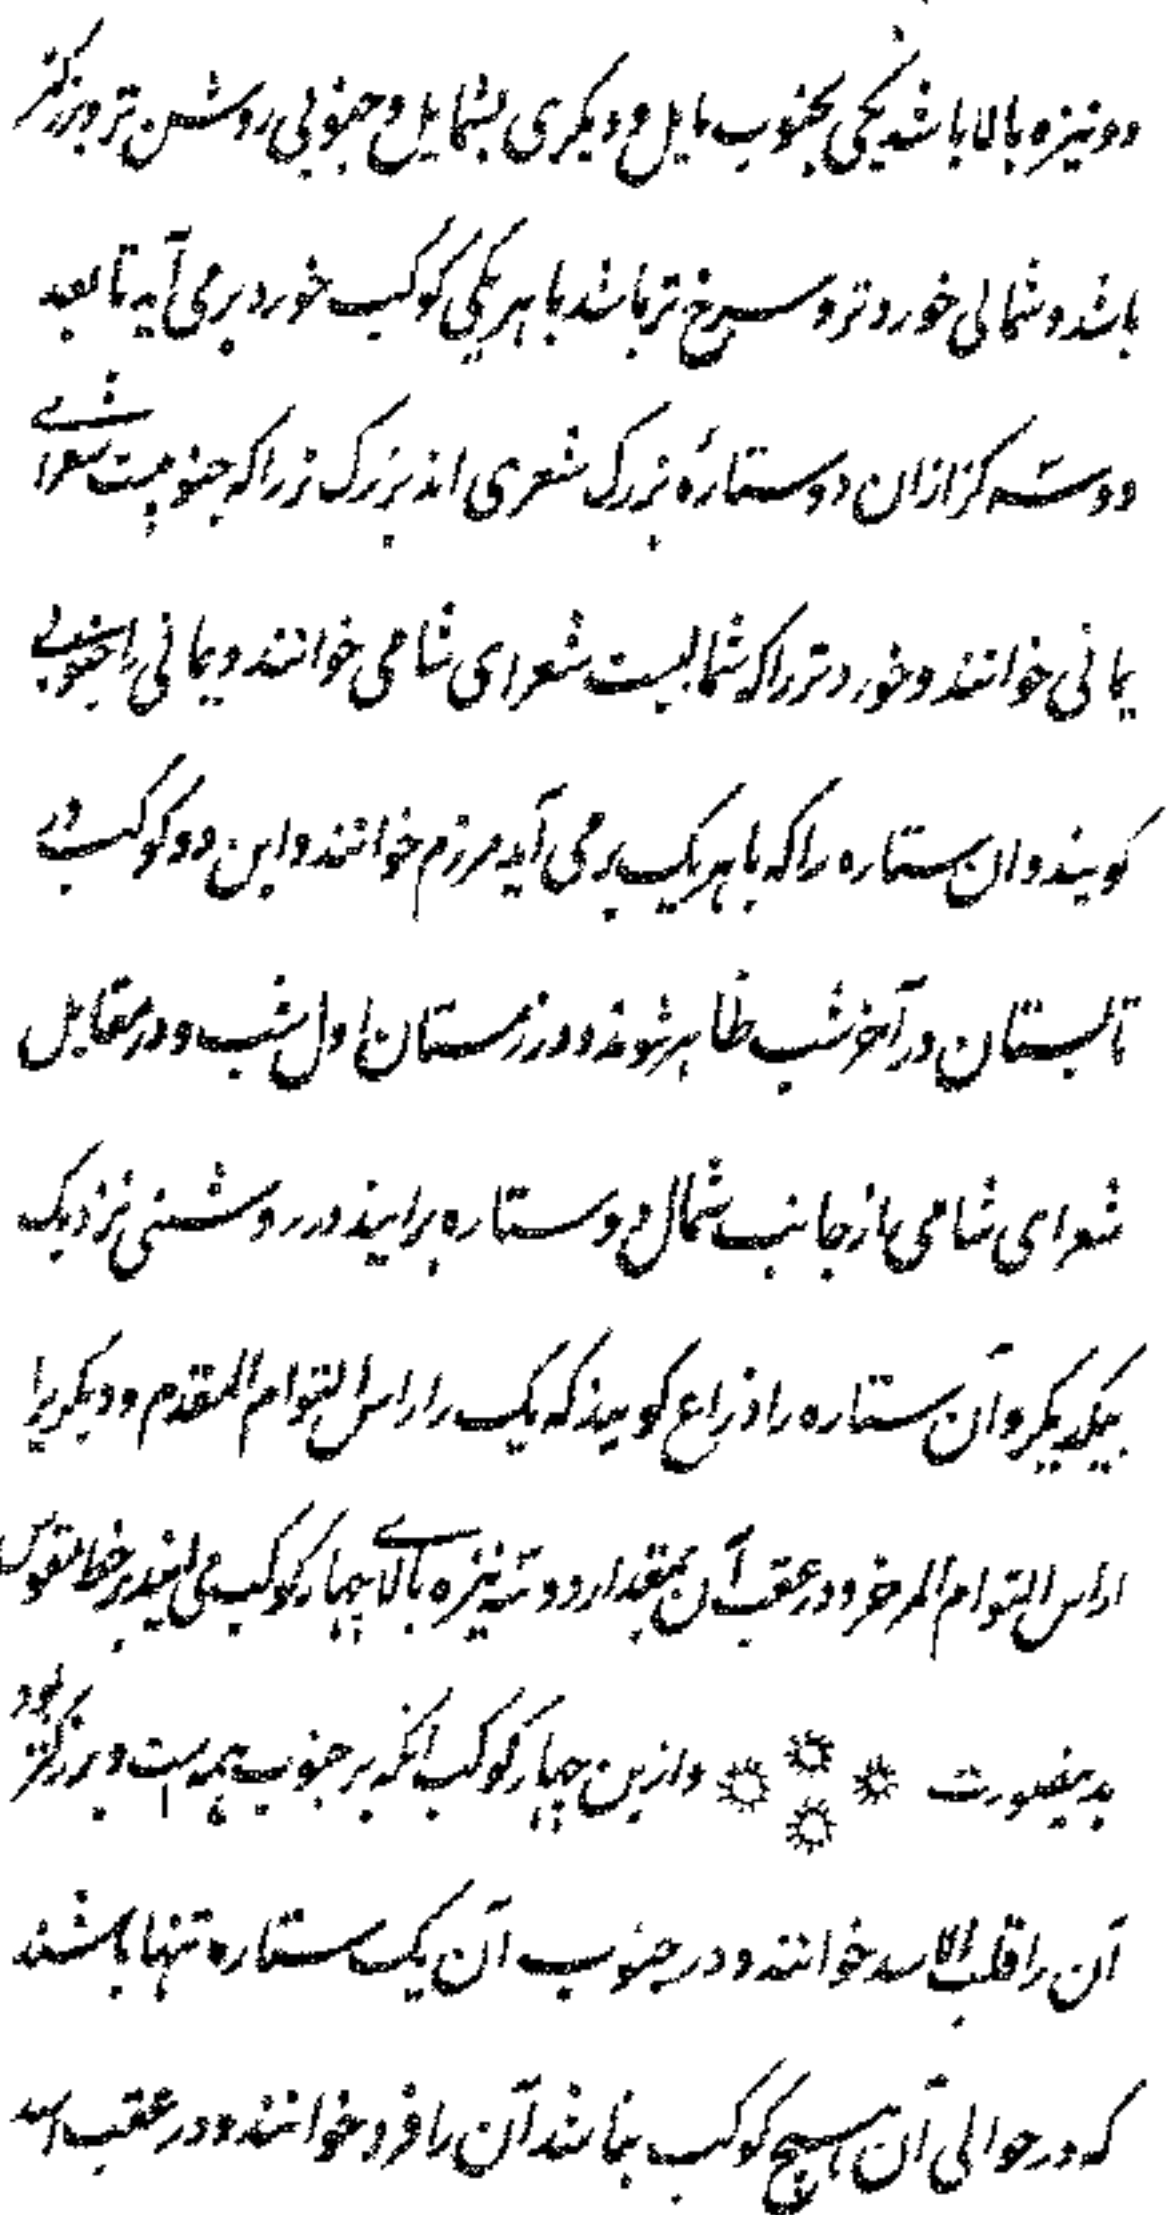 دو نیزه بالا باشد یکی بجنوب مایل و دیگری بشمایل و جنوبی روشن تر و بزرگتر
باشد و شمالی خوردتر و سرخ تر باشد با هر یکی کوکب خورد برمی آید تا بعد
دوسته گز ازان دو ستارهٔ بزرک شعری اند بزرک تر را که جنوبیست شعرای
یمانی خوانند و خوردتر را که شمالیست شعرای شامی خوانند و یمانی را جنوبی
کویند و ان ستاره را که با هر یک برمی آید مرزم خوانند و این دو کوکب در
تابستان در آخر شب ظاهر شوند و در زمستان اول شب و در مقابل
شعرای شامی از جانب شمال دو ستاره برایند در روشنی نزدیک
بیکدیکر و آن ستاره را ذراع کویند که یک را راس التوام المقدم و دیکریرا
راس التوام الموخر و در عقب آن بمقدار دو سه نیزه بالا چهار کوکب می ایند بر خط مقوس
بدینصورت و ازین چهار کوکب انکه بر جنوب همه است و بزرکتر بود
آن را قلب الاسد خوانند و در جنوب آن یک ستاره تنها باشد
که در حوالی آن هیچ کوکب نباشد آن را فرد خوانند و در عقب اسد